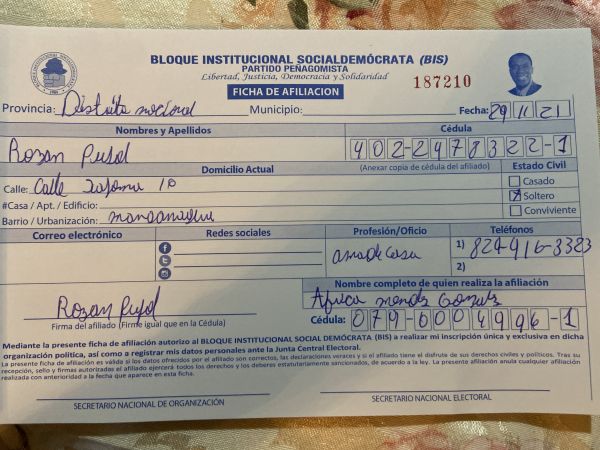 BLOQUE INSTITUCIONAL SOCIALDEMÓCRATA (BIS)
PARTIDO PEÑAGOMISTA
Libertad, Justicia, Democracia y Solidaridad
FICHA DE AFILIACION
187210
Provincia: Distrito nacional Municipio: Fecha: 29 11 21
Nombres y Apellidos Cédula
Rozan Pujol 402-2478322-1
Domicilio Actual (Anexar copia de cédula del afiliado) Estado Civil
Calle: Calle 10 Casado
#Casa / Apt. / Edificio: Soltero
Barrio / Urbanización: Conviviente
Correo electrónico Redes sociales Profesión/Oficio Teléfonos
ama de Casa 1) 824-916-3383
2)
Nombre completo de quien realiza la afiliación
Rozan Pujol
Firma del afiliado (Firme igual que en la Cédula) Cédula: 079-0004996-1
Mediante la presente ficha de afiliación autorizo al BLOQUE INSTITUCIONAL SOCIAL DEMÓCRATA (BIS) a realizar mi inscripción única y exclusiva en dicha
organización política, así como a registrar mis datos personales ante la Junta Central Electoral.
La presente ficha de afiliación es válida si los datos ofrecidos por el afiliado son correctos, las declaraciones veraces y si el afiliado tiene el disfrute de sus derechos civiles y políticos. Tras su
recepción, sello y firmas autorizadas el afiliado ejercerá todos los derechos y los deberes estatutariamente sancionados, de acuerdo a la ley. La presente afiliación anula cualquier afiliación
realizada con anterioridad a la fecha que aparece en esta ficha.
SECRETARIO NACIONAL DE ORGANIZACIÓN SECRETARIO NACIONAL ELECTORAL